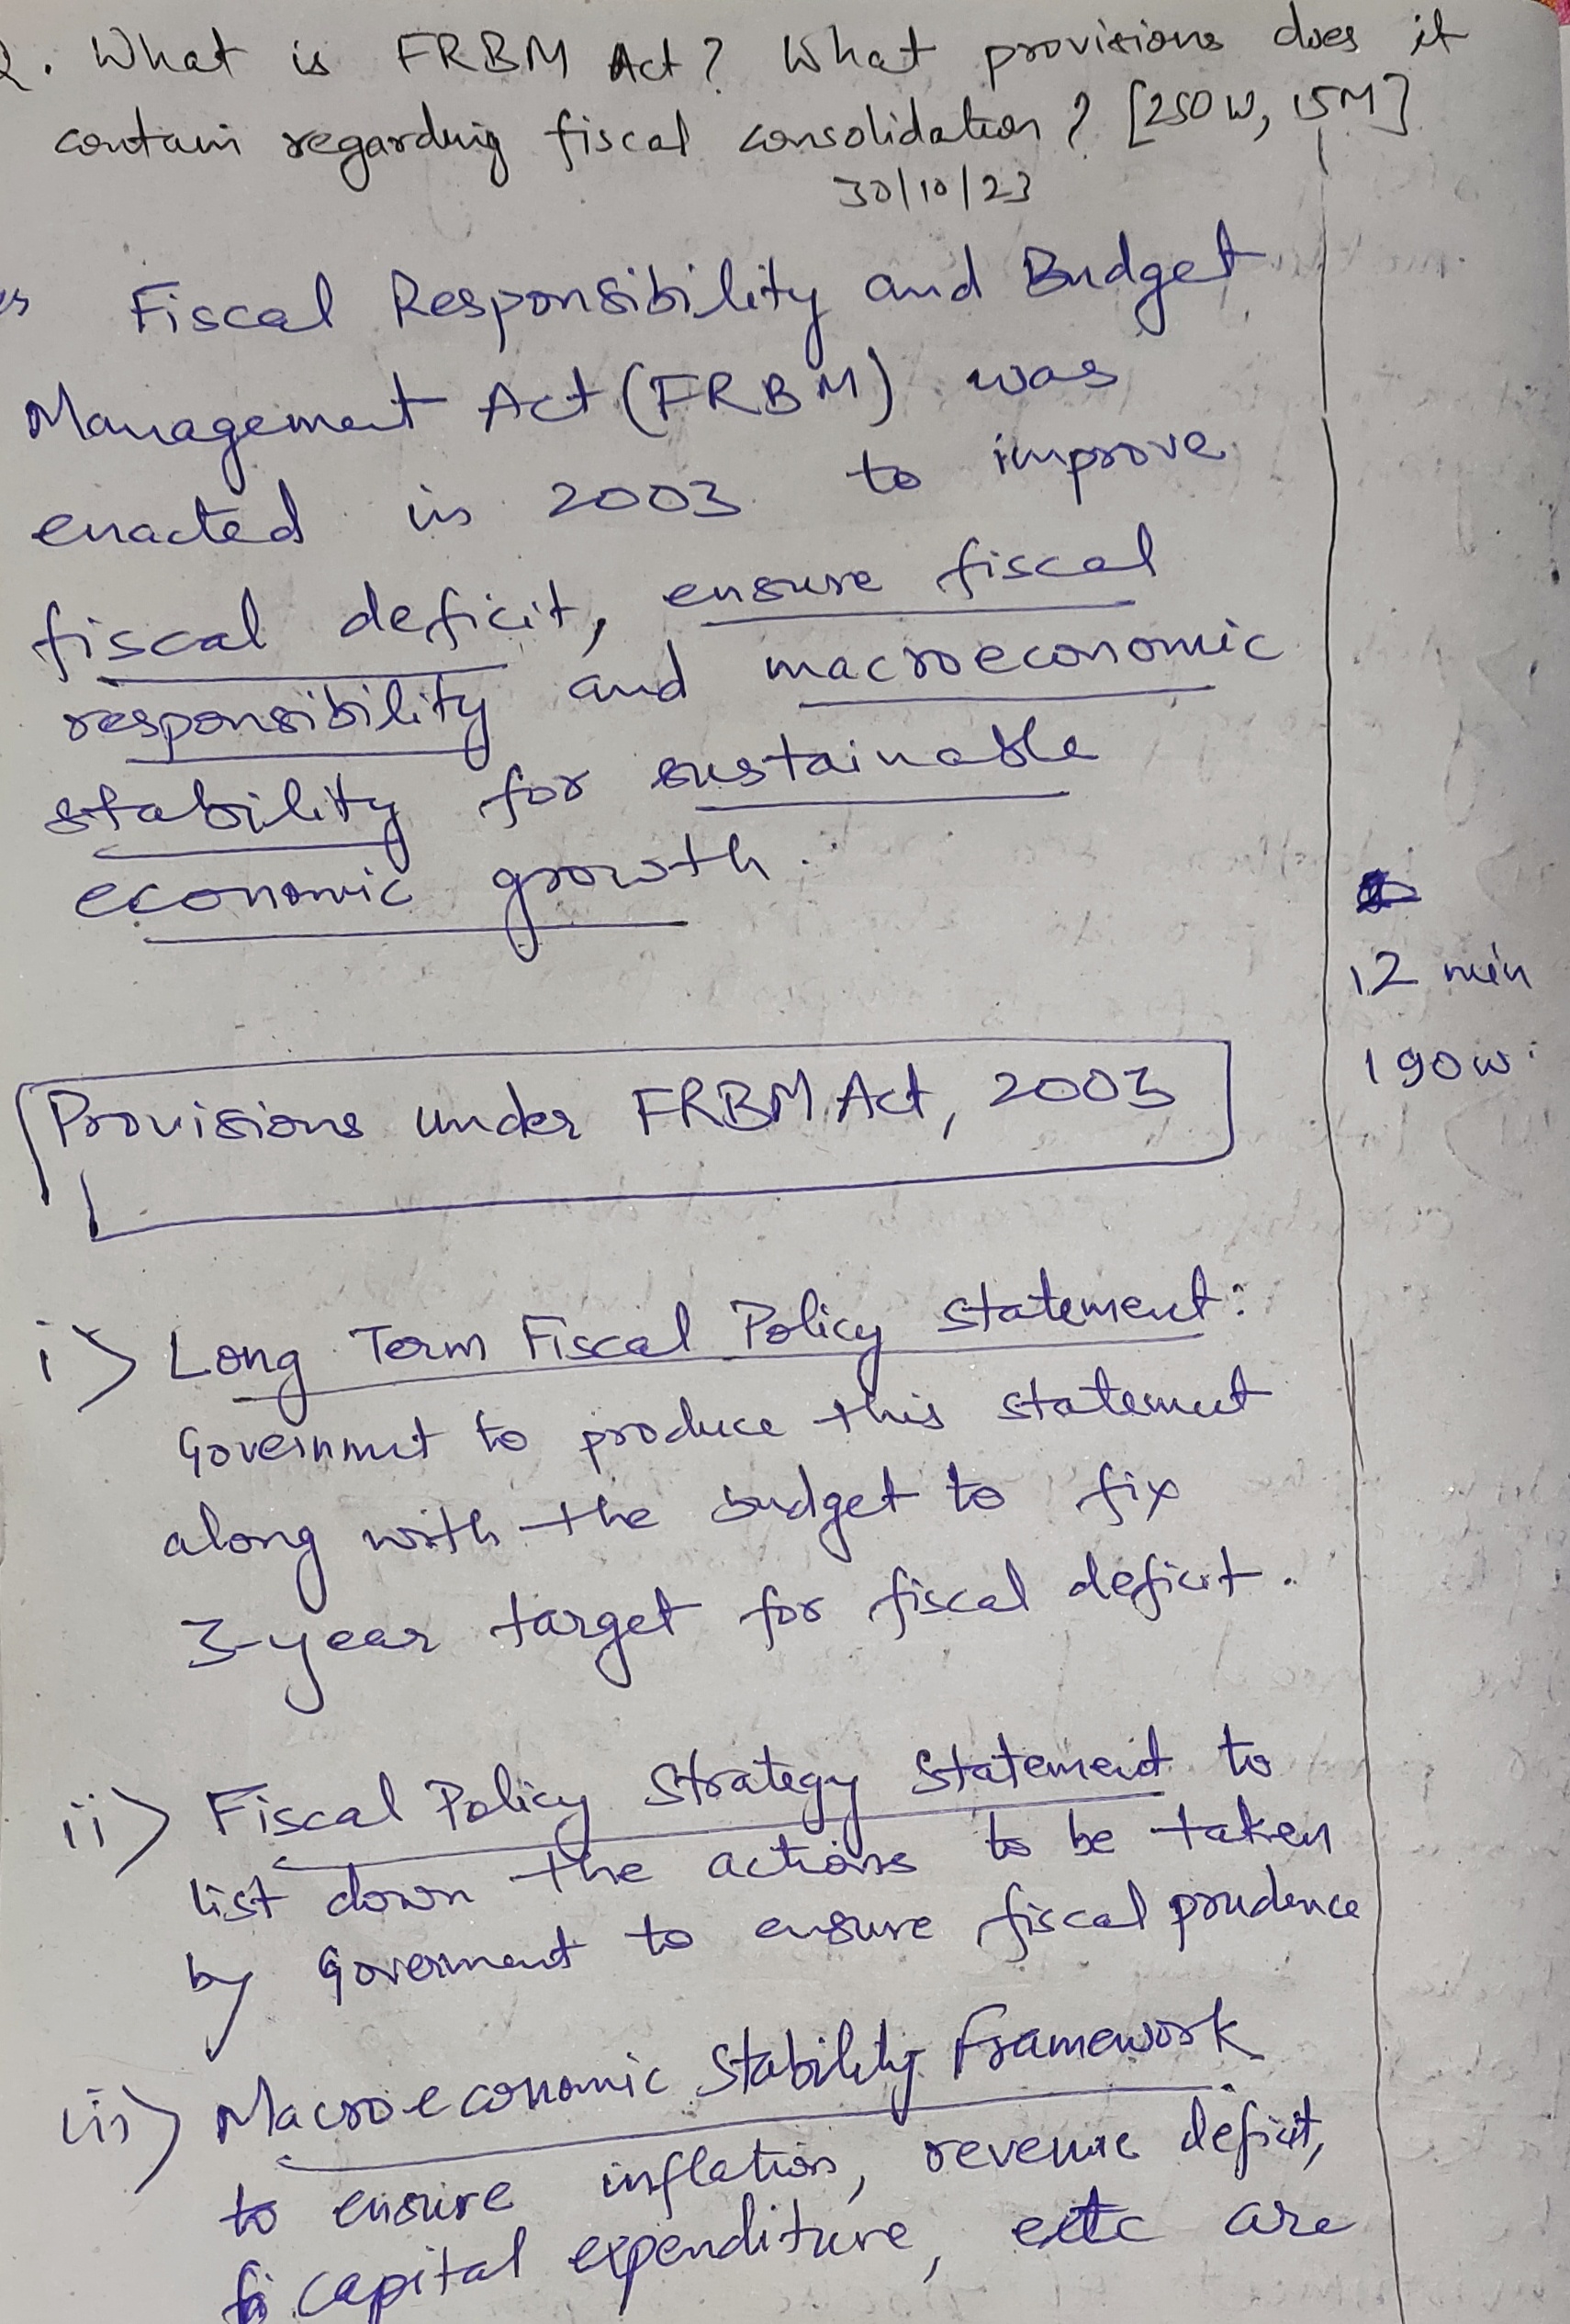 Q. What is FRBM Act? What provisions does it
contain regarding fiscal consolidation? [250W, 15M]
30/10/23
Fiscal Responsibility and Budget
Management Act (FRBM) was
enacted in 2003 to improve
fiscal deficit, ensure fiscal
responsibility and macroeconomic
stability for sustainable
economic growth.
12 min
190w.
Provisions under FRBM Act, 2003
i) Long Term Fiscal Policy Statement:
Governmet to produce this statement
along with the budget to fix
3-year target for fiscal deficit.
ii) Fiscal Policy Strategy Statement to
list down the actions to be taken
by Goverment to ensure fiscal prudence
iii) Macroeconomic Stability Framework
to ensure inflation, revenue deficit,
capital expenditure, etc are